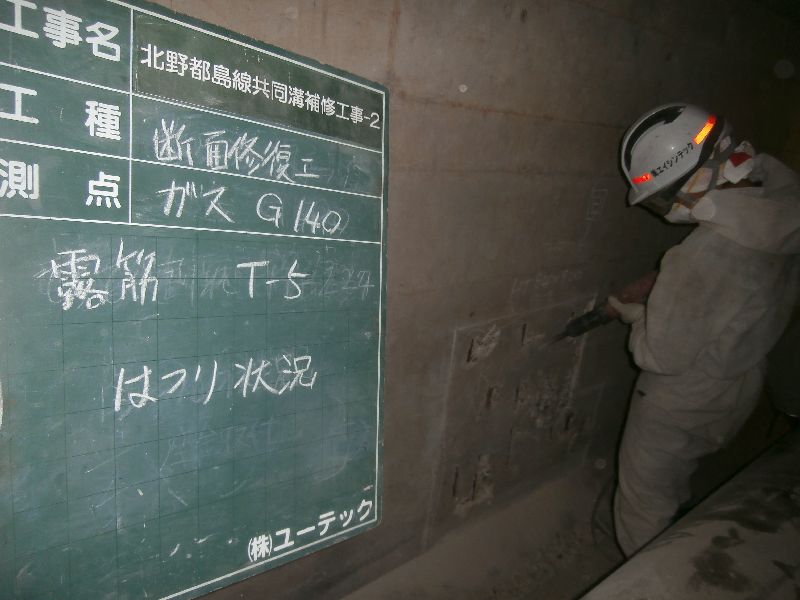 工事名 北野都島線共同溝補修工事-2
工種 断面修復工
測点 ガス G140
露筋 T-5
はつり状況
(株)ユーテック
㈱エイシンテック